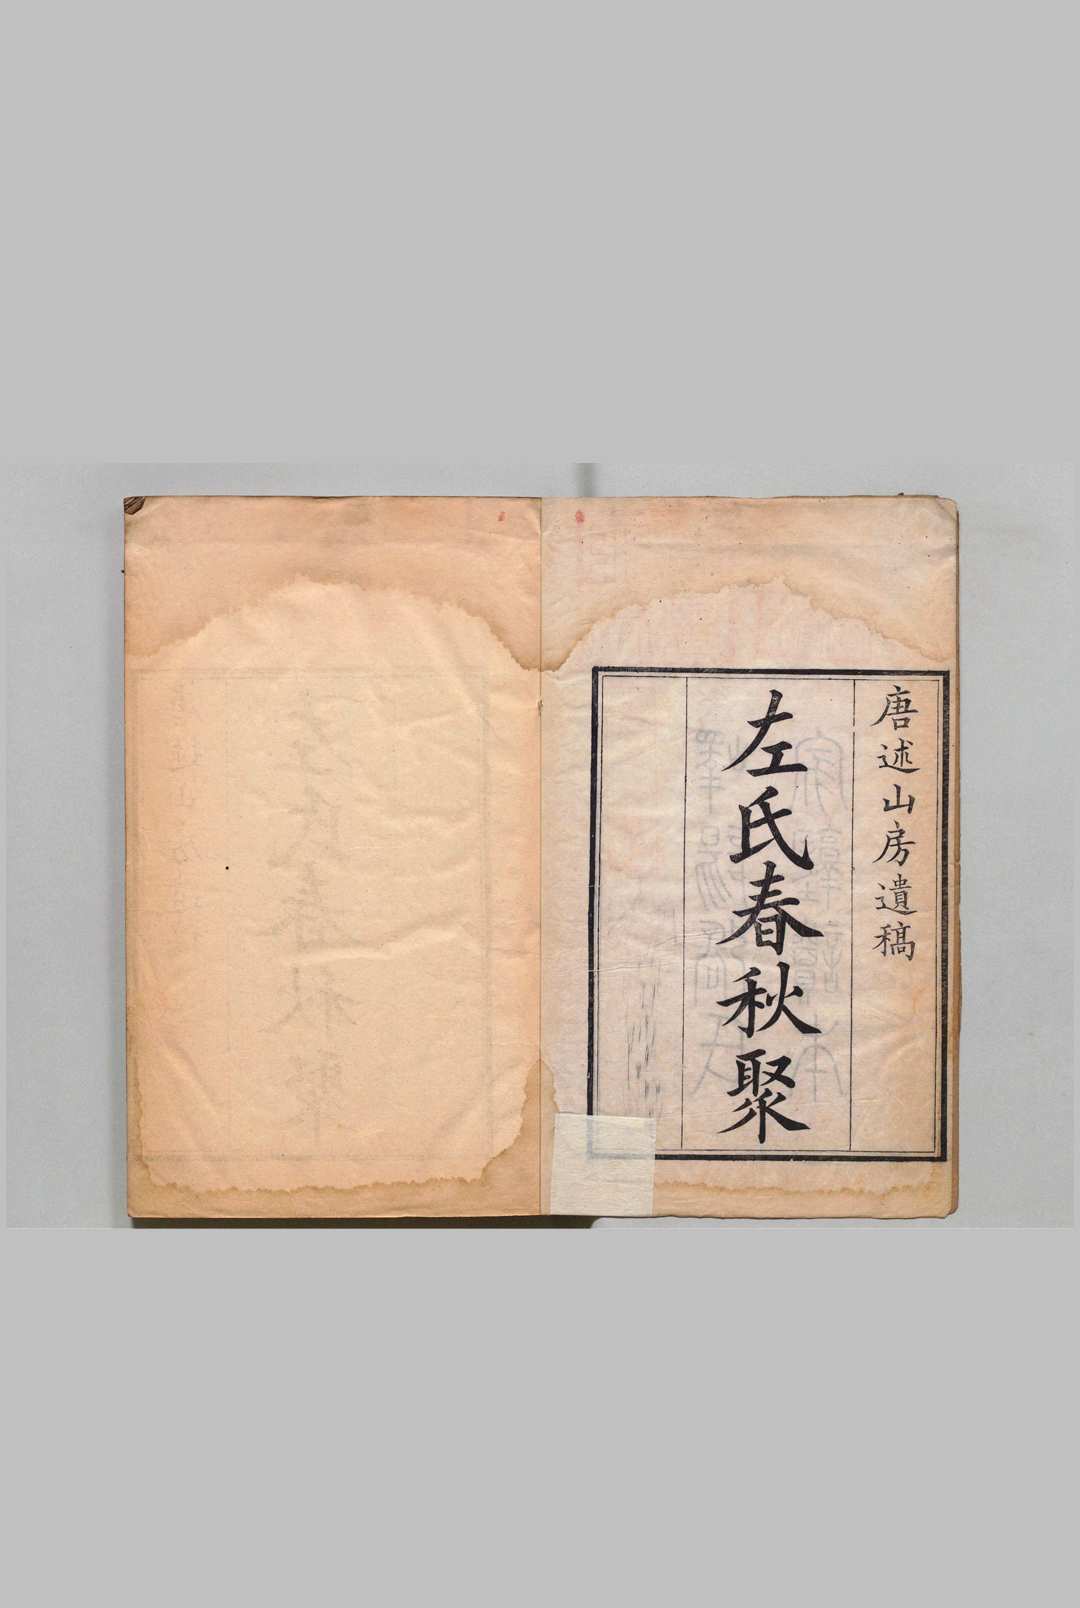 唐述山房遺稿
左氏春秋聚